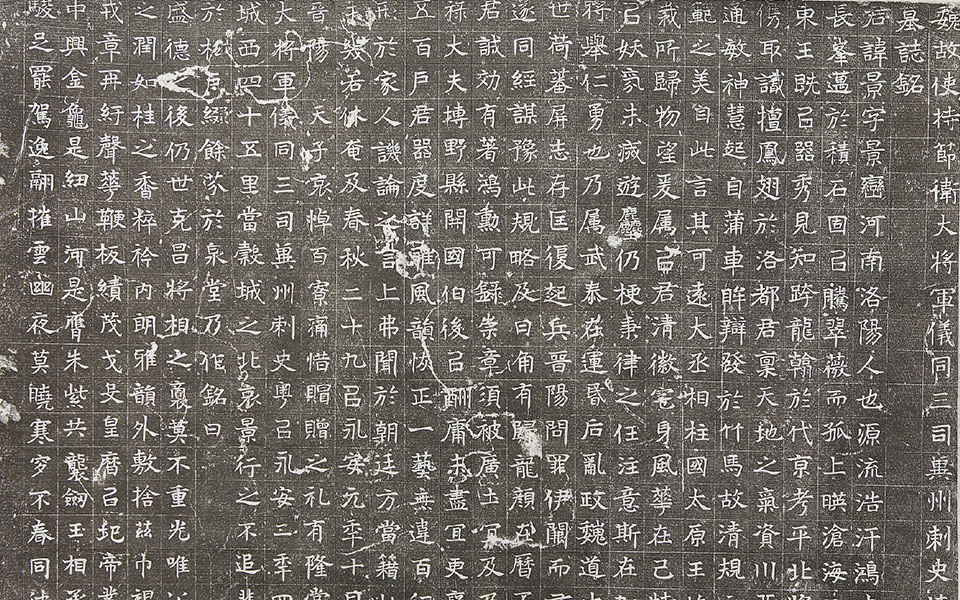 魏故使持節衛大將軍儀同三司冀州刺史
墓誌銘
君諱景字景巒河南洛陽人也源流浩汗鴻
長峯邁於積石固㠯騰翠薇而孤上暎滄海
東王旣㠯器秀見知跨龍翰於代京考平北將
儁取讖擅鳳翅於洛都君稟天地之氣資川
通敏神慧起自蒲車眸辯發於竹馬故清規
範之美自此言其可遠大丞相柱國太原王
所歸物望爰属㠯君清徽宅身風華在己
㠯妖氛未遊仍梗秉律之任注意斯在
將舉仁勇也乃属武泰在運昏后亂政魏道
世荷蕃屏志存匡復起兵晉陽問罪伊闕而
遂同經謀豫此規略及日角有歸龍顏在曆
君誠効有著鴻勳可録崇章須被廣土冝及
祿大夫摶野縣開國伯後㠯酬庸未盡冝更
五百户君器度詳雅風韻恢正一藝無違百
形於家人譏論之言上弗聞於朝廷方當籍
綬若休奄及春秋二十九㠯永安元秊十
晉陽 天子哀悼百寮痛惜賵贈之礼有隆常
大將軍儀同三司冀州刺史粤㠯永安三秊四
城西四十五里當穀城之北哀景行之不追
於松綴餘芬於泉堂乃作銘曰
盛德後仍世克昌將相之裏莫不重光唯
之潤如桂之香粹衿内朗雅韻外敷捨茲巾
戎章再紆聲華鞭板績茂戈殳皇曆㠯圮帝
中興金龜是紐山河是膺朱紫共襲劒玉相
駿足罷駕逸翮摧雲幽夜莫曉寒穸不春同